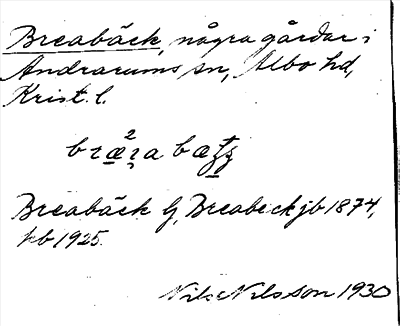 Breabäck, några gårdar i
Andrarums sn, Albo hd,
Krist. l.
Breabäck G, Breabeck jb 1874,
kb 1925.
Nils Nilsson 1930